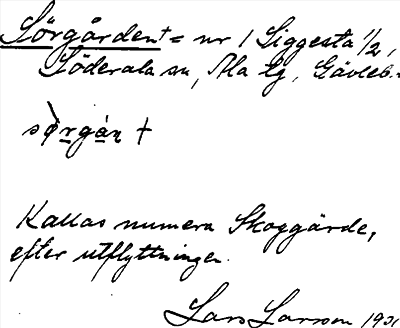 Sörgården† = nr 1 Siggesta 1/2,
Söderala sn, Ala tg, Gävleb.
Kallas numera Skoggärde,
efter utflyttningen.
Lars Larsson 193